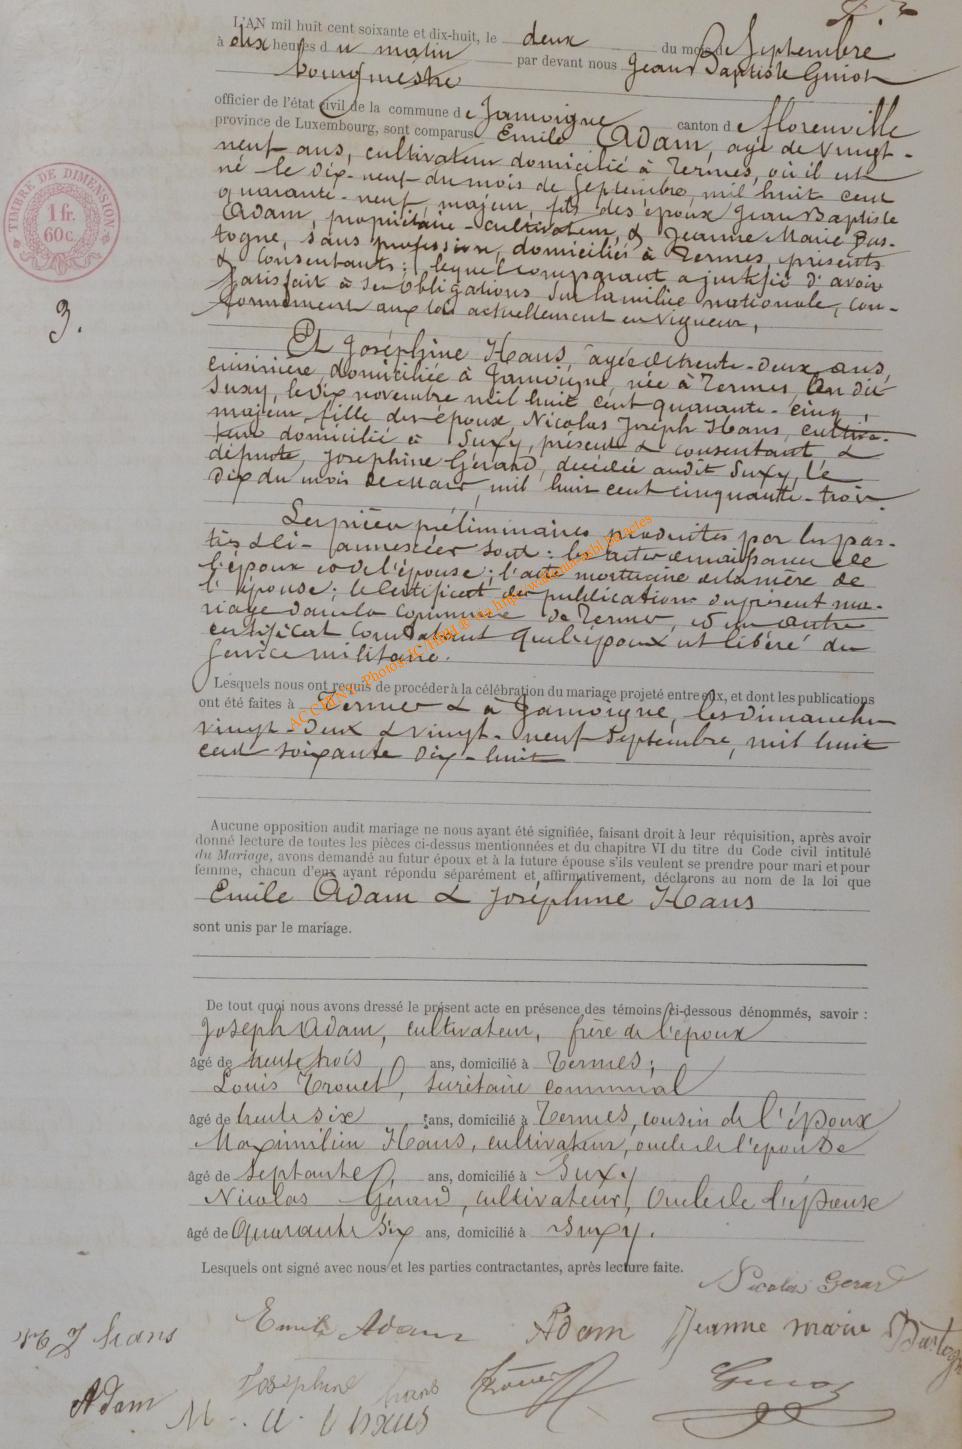 TIMBRE DE DIMENSION
1 fr.
60 c.
3.
L'AN mil huit cent soixante et dix-huit, le deux du mois de Septembre
à dix heures du matin par devant nous Jean Baptiste Guiot
bourgmestre
officier de l'état civil de la commune de Jamoigne canton de florenville
province de Luxembourg, sont comparus Emile Adam, agé de vingt-
neuf ans, cultivateur domicilié à Termes, où il est
né le dix-neuf du mois de Septembre, mil huit cent
quarante-neuf, majeur, fils des époux Jean Baptiste
Adam, propriétaire-cultivateur, & Jeanne Marie Bas-
togne, sans profession, domiciliés à Termes, présents
& consentants; lequel comparant a justifié d'avoir
satisfait à ses obligations sur la milice nationale, con-
formément aux lois actuellement en vigueur,
Et Joséphine Hans, agée de trente-deux ans,
cuisinière, domiciliée à Jamoigne, née à Termes, 
Suxy, le dix novembre mil huit cent quarante-cinq,
majeur, fille des époux, Nicolas Joseph Hans, cultiva-
teur domicilié à Suxy, présent & consentant &
défunte, Joséphine Gérard, décédée audit Suxy, le
dix du mois de Mars, mil huit cent cinquante-trois.
Les pièces préliminaires produites par les par-
ties & ci-annexées sont: les actes de naissance de
l'époux et de l'épouse; l'acte mortuaire de la mère de
l'épouse; le certificat des publications du présent ma-
riage dans la commune de Termes, et un autre
certificat constatant que l'époux est libéré du
service militaire.
ACCHENY Photos
Lesquels nous ont requis de procéder à la célébration du mariage projeté entre eux, et dont les publications
ont été faites à Termes & à Jamoigne, les dimanches
vingt-deux & vingt-neuf Septembre, mil huit
cent soixante dix-huit
Aucune opposition audit mariage ne nous ayant été signifiée, faisant droit à leur réquisition, après avoir
donné lecture de toutes les pièces ci-dessus mentionnées et du chapitre VI du titre du Code civil intitulé
du Mariage, avons demandé au futur époux et à la future épouse s'ils veulent se prendre pour mari et pour
femme, chacun d'eux ayant répondu séparément et affirmativement, déclarons au nom de la loi que
Emile Adam & Joséphine Hans
sont unis par le mariage.
De tout quoi nous avons dressé le présent acte en présence des témoins ci-dessous dénommés, savoir :
Joseph Adam, cultivateur, frère de l'époux
âgé de trente trois ans, domicilié à Termes;
Louis Trouet, secrétaire communal
âgé de trente six ans, domicilié à Termes, cousin de l'époux
Maximilien Hans, cultivateur, oncle de l'épouse
âgé de septante ans, domicilié à Suxy
Nicolas Gérard, cultivateur, Oncle de l'épouse
âgé de Quarante six ans, domicilié à Suxy.
Lesquels ont signé avec nous et les parties contractantes, après lecture faite.
Nicolas Gerard
N J hans Emile Adam Adam Jeanne marie Bastogne
Adam Joséphine hans Trouet Guiot
M